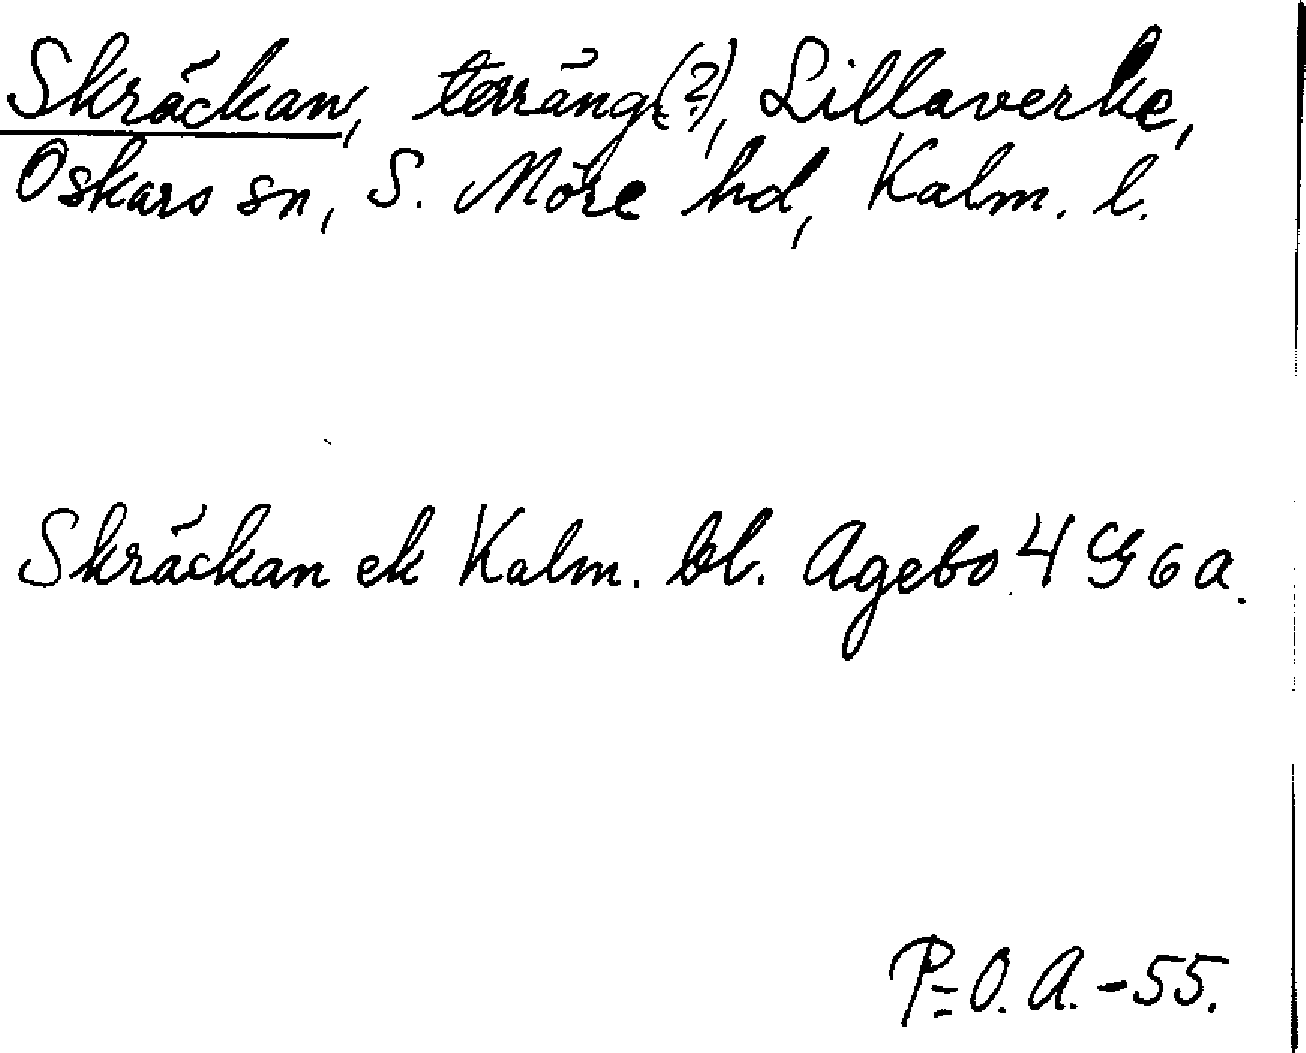 Skräckan, terräng(?), Lillaverke,
Oskars sn, S. Möre hd, Kalm. l.
Skräckan ek Kalm. bl. Agebo 4 G 6 a.
P-O. A. -55.